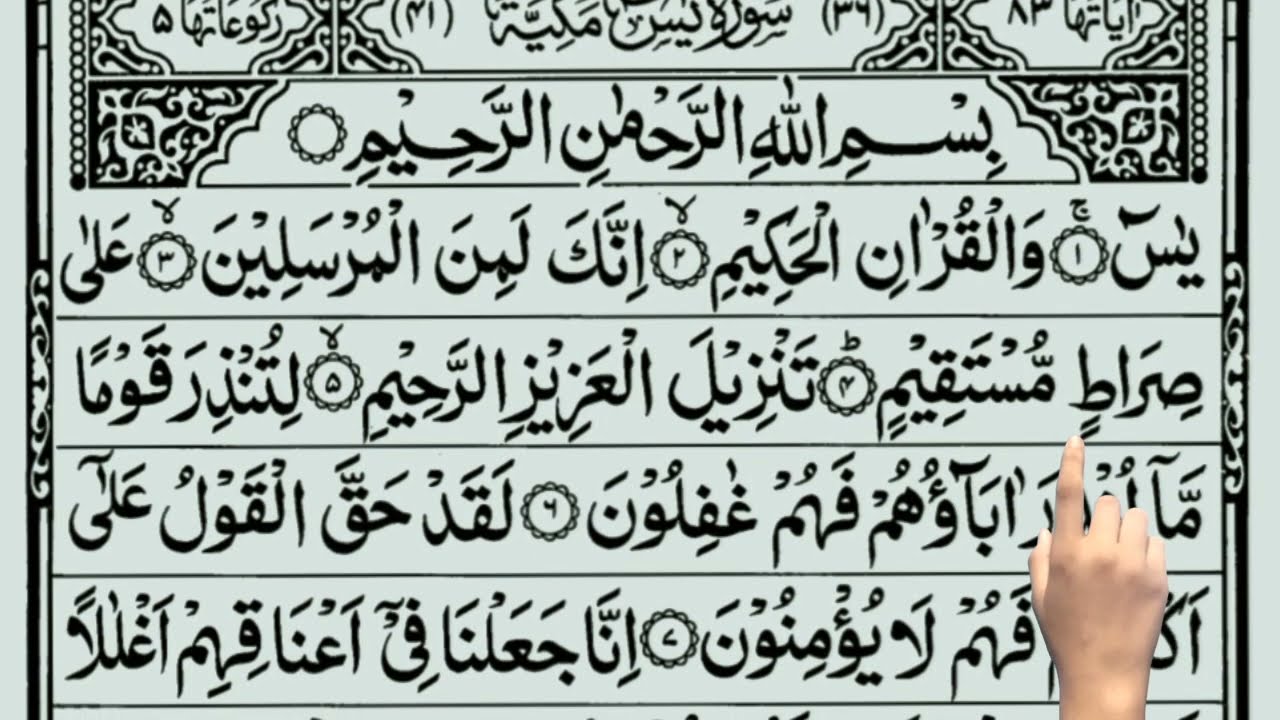 اٰيَاتُهَا ٨٣ (٣٦) سُوْرَةُ يٰسٓ مَكِّيَّةٌ (٤١) رُكُوْعَاتُهَا ٥
بِسْمِ اللّٰهِ الرَّحْمٰنِ الرَّحِيْمِ
يٰسٓ ۚ ﴿١﴾ وَالْقُرْاٰنِ الْحَكِيْمِ ۙ ﴿٢﴾ اِنَّكَ لَمِنَ الْمُرْسَلِيْنَ ۙ ﴿٣﴾ عَلٰى
صِرَاطٍ مُّسْتَقِيْمٍ ؕ ﴿٤﴾ تَنْزِيْلَ الْعَزِيْزِ الرَّحِيْمِ ۙ ﴿٥﴾ لِتُنْذِرَ قَوْمًا
مَّاۤ اٰبَآؤُهُمْ فَهُمْ غٰفِلُوْنَ ﴿٦﴾ لَقَدْ حَقَّ الْقَوْلُ عَلٰٓى
فَهُمْ لَا يُؤْمِنُوْنَ ﴿٧﴾ اِنَّا جَعَلْنَا فِىْٓ اَعْنَاقِهِمْ اَغْلٰلًا